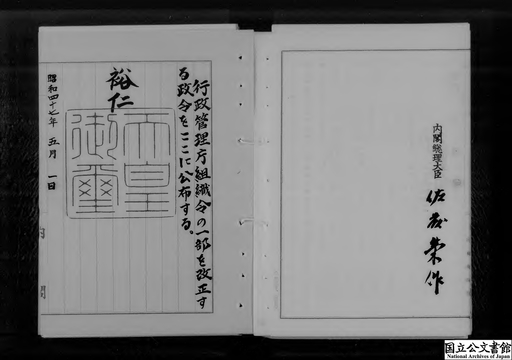 行政管理庁組織令の一部を改正す
る政令をここに公布する。
裕仁
天皇
御璽
昭和四十七年 五月 一日
内閣総理大臣 佐藤榮作
国立公文書館
National Archives of Japan